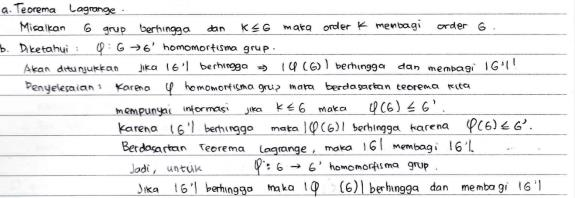 a. Teorema Lagrange.
Misalkan G grup berhingga dan K ≤ G maka order K membagi order G.
b. Diketahui : φ : G → G' homomorfisma grup.
Akan ditunjukkan jika |G'| berhingga ⇒ |φ(G)| berhingga dan membagi |G'|!
Penyelesaian : Karena φ homomorfisma grup maka berdasarkan teorema kita
mempunyai informasi jika K ≤ G maka φ(G) ≤ G'.
Karena |G'| berhingga maka |φ(G)| berhingga karena φ(G) ≤ G'.
Berdasarkan Teorema Lagrange, maka |G| membagi |G'|.
Jadi, untuk φ : G → G' homomorfisma grup.
Jika |G'| berhingga maka |φ (G)| berhingga dan membagi |G'|